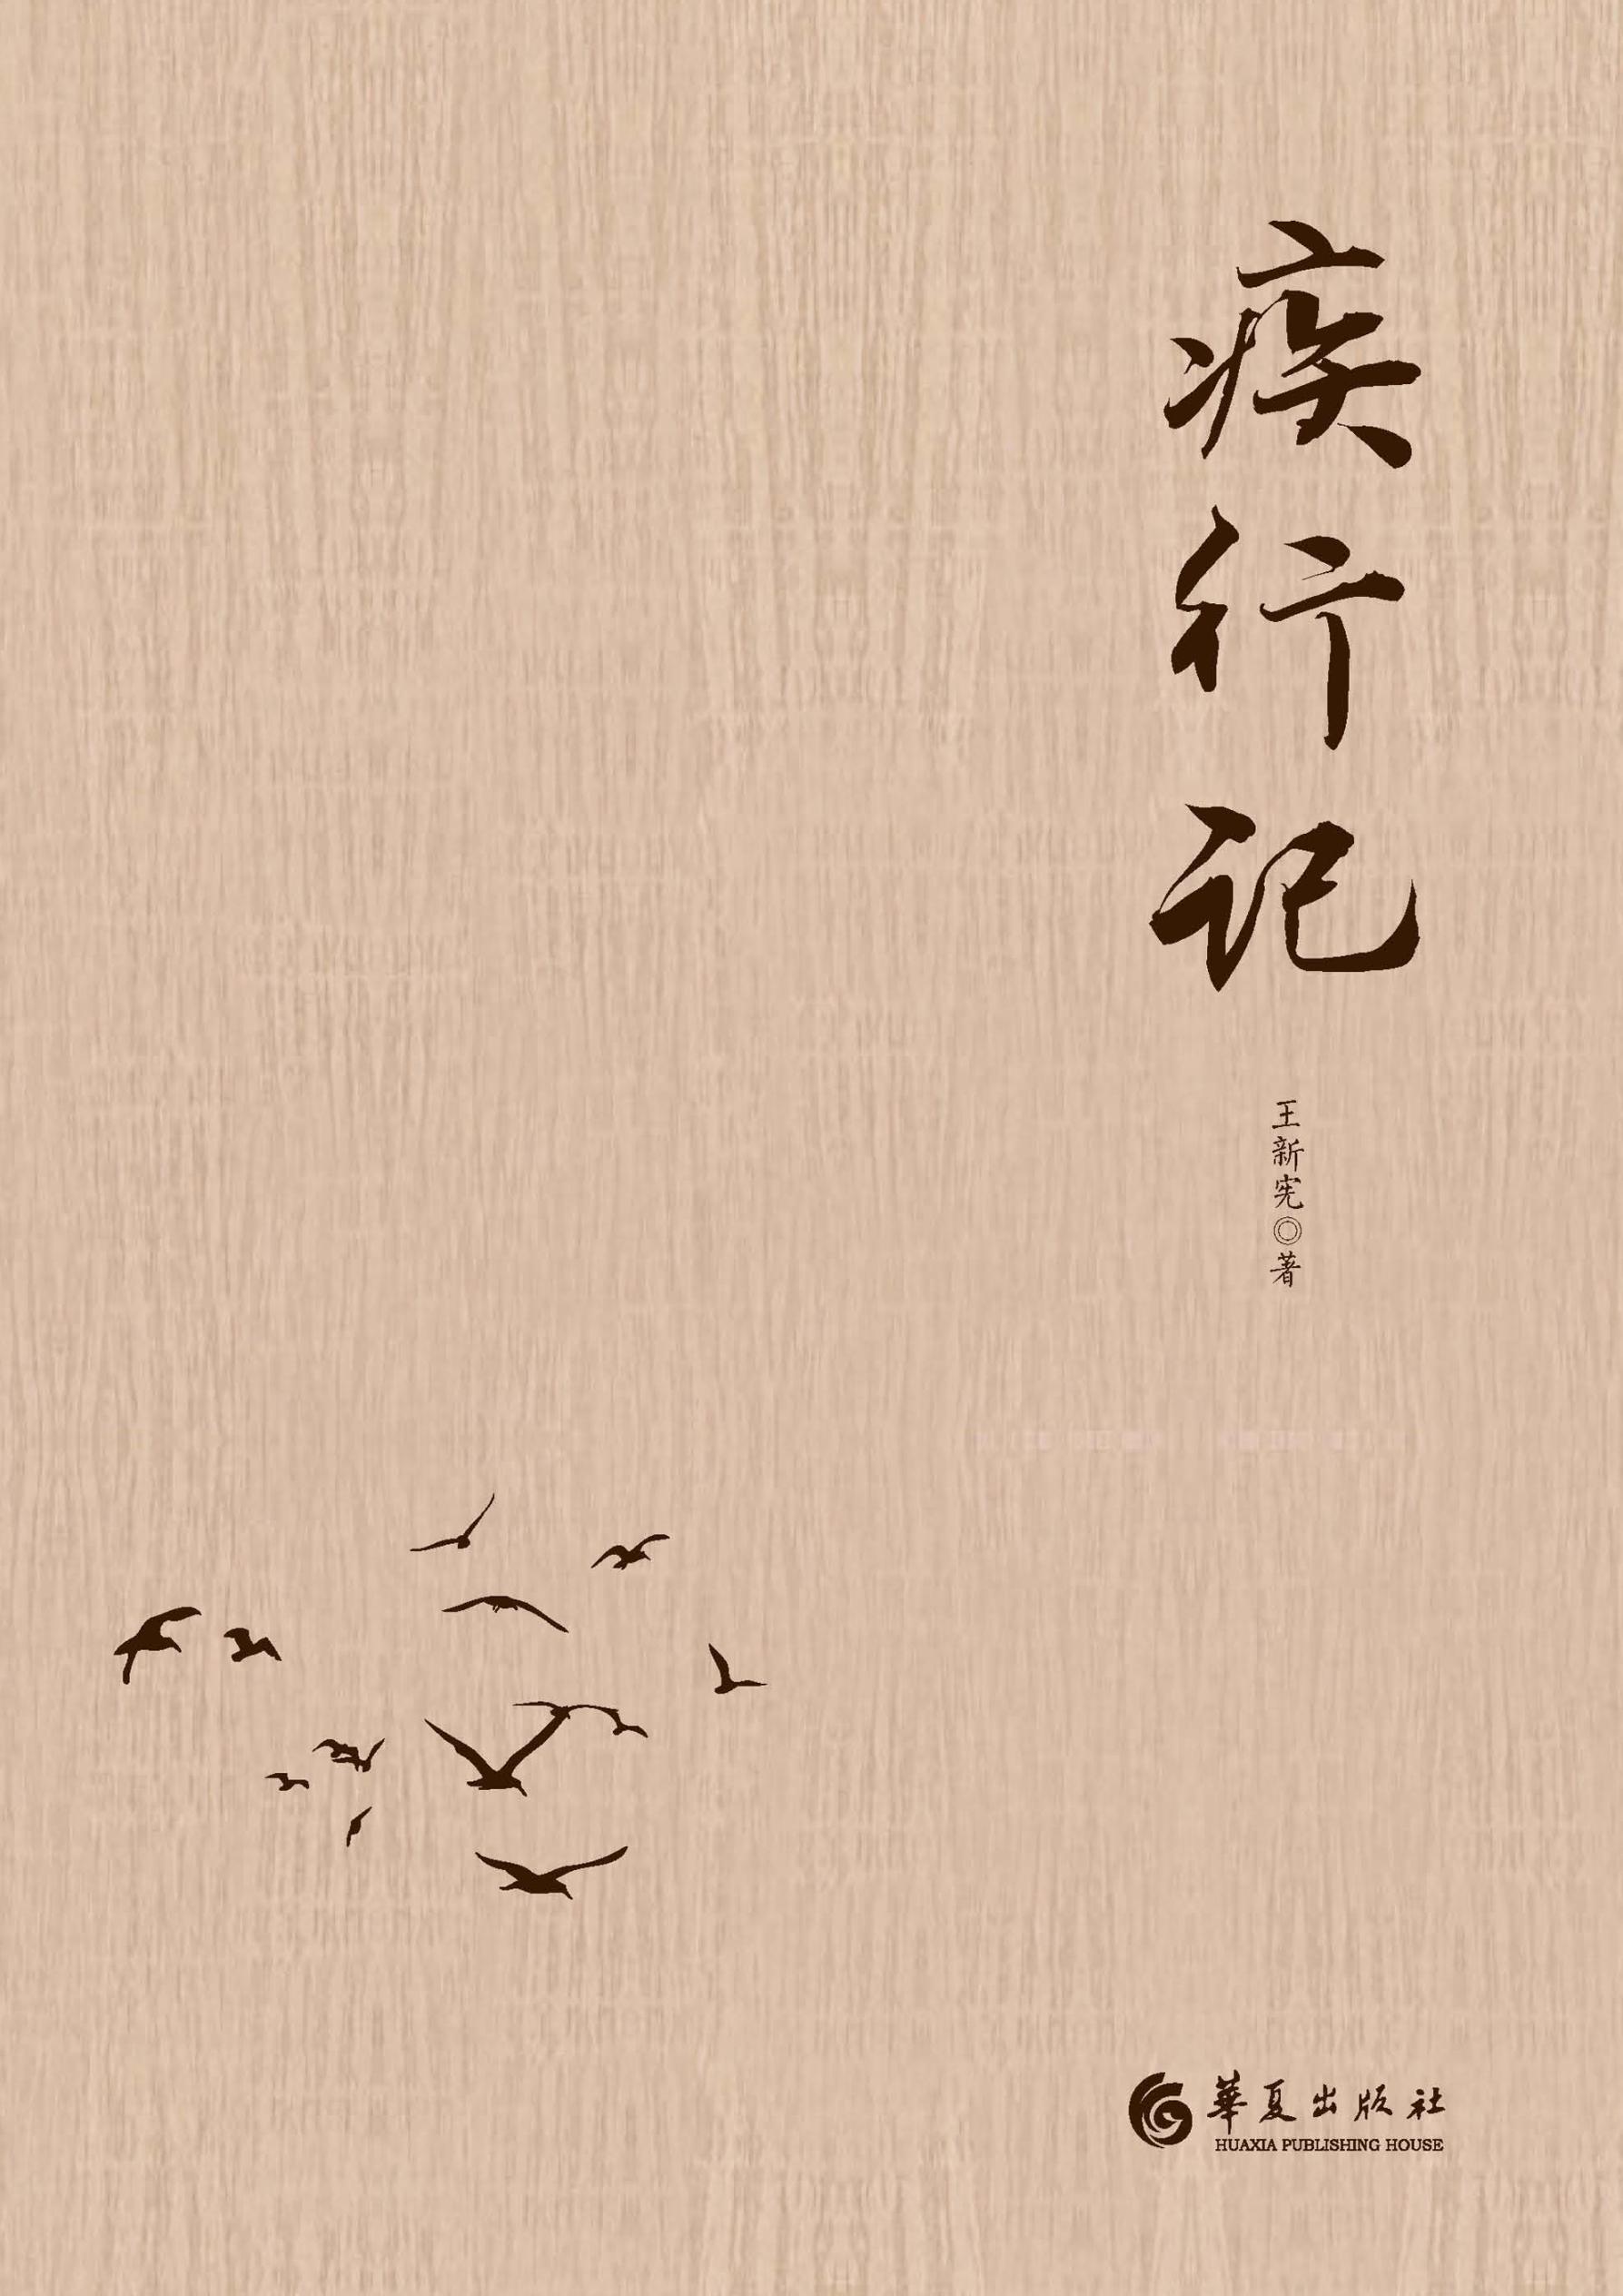 疾行记
王新宪◎著
華夏出版社
HUAXIA PUBLISHING HOUSE